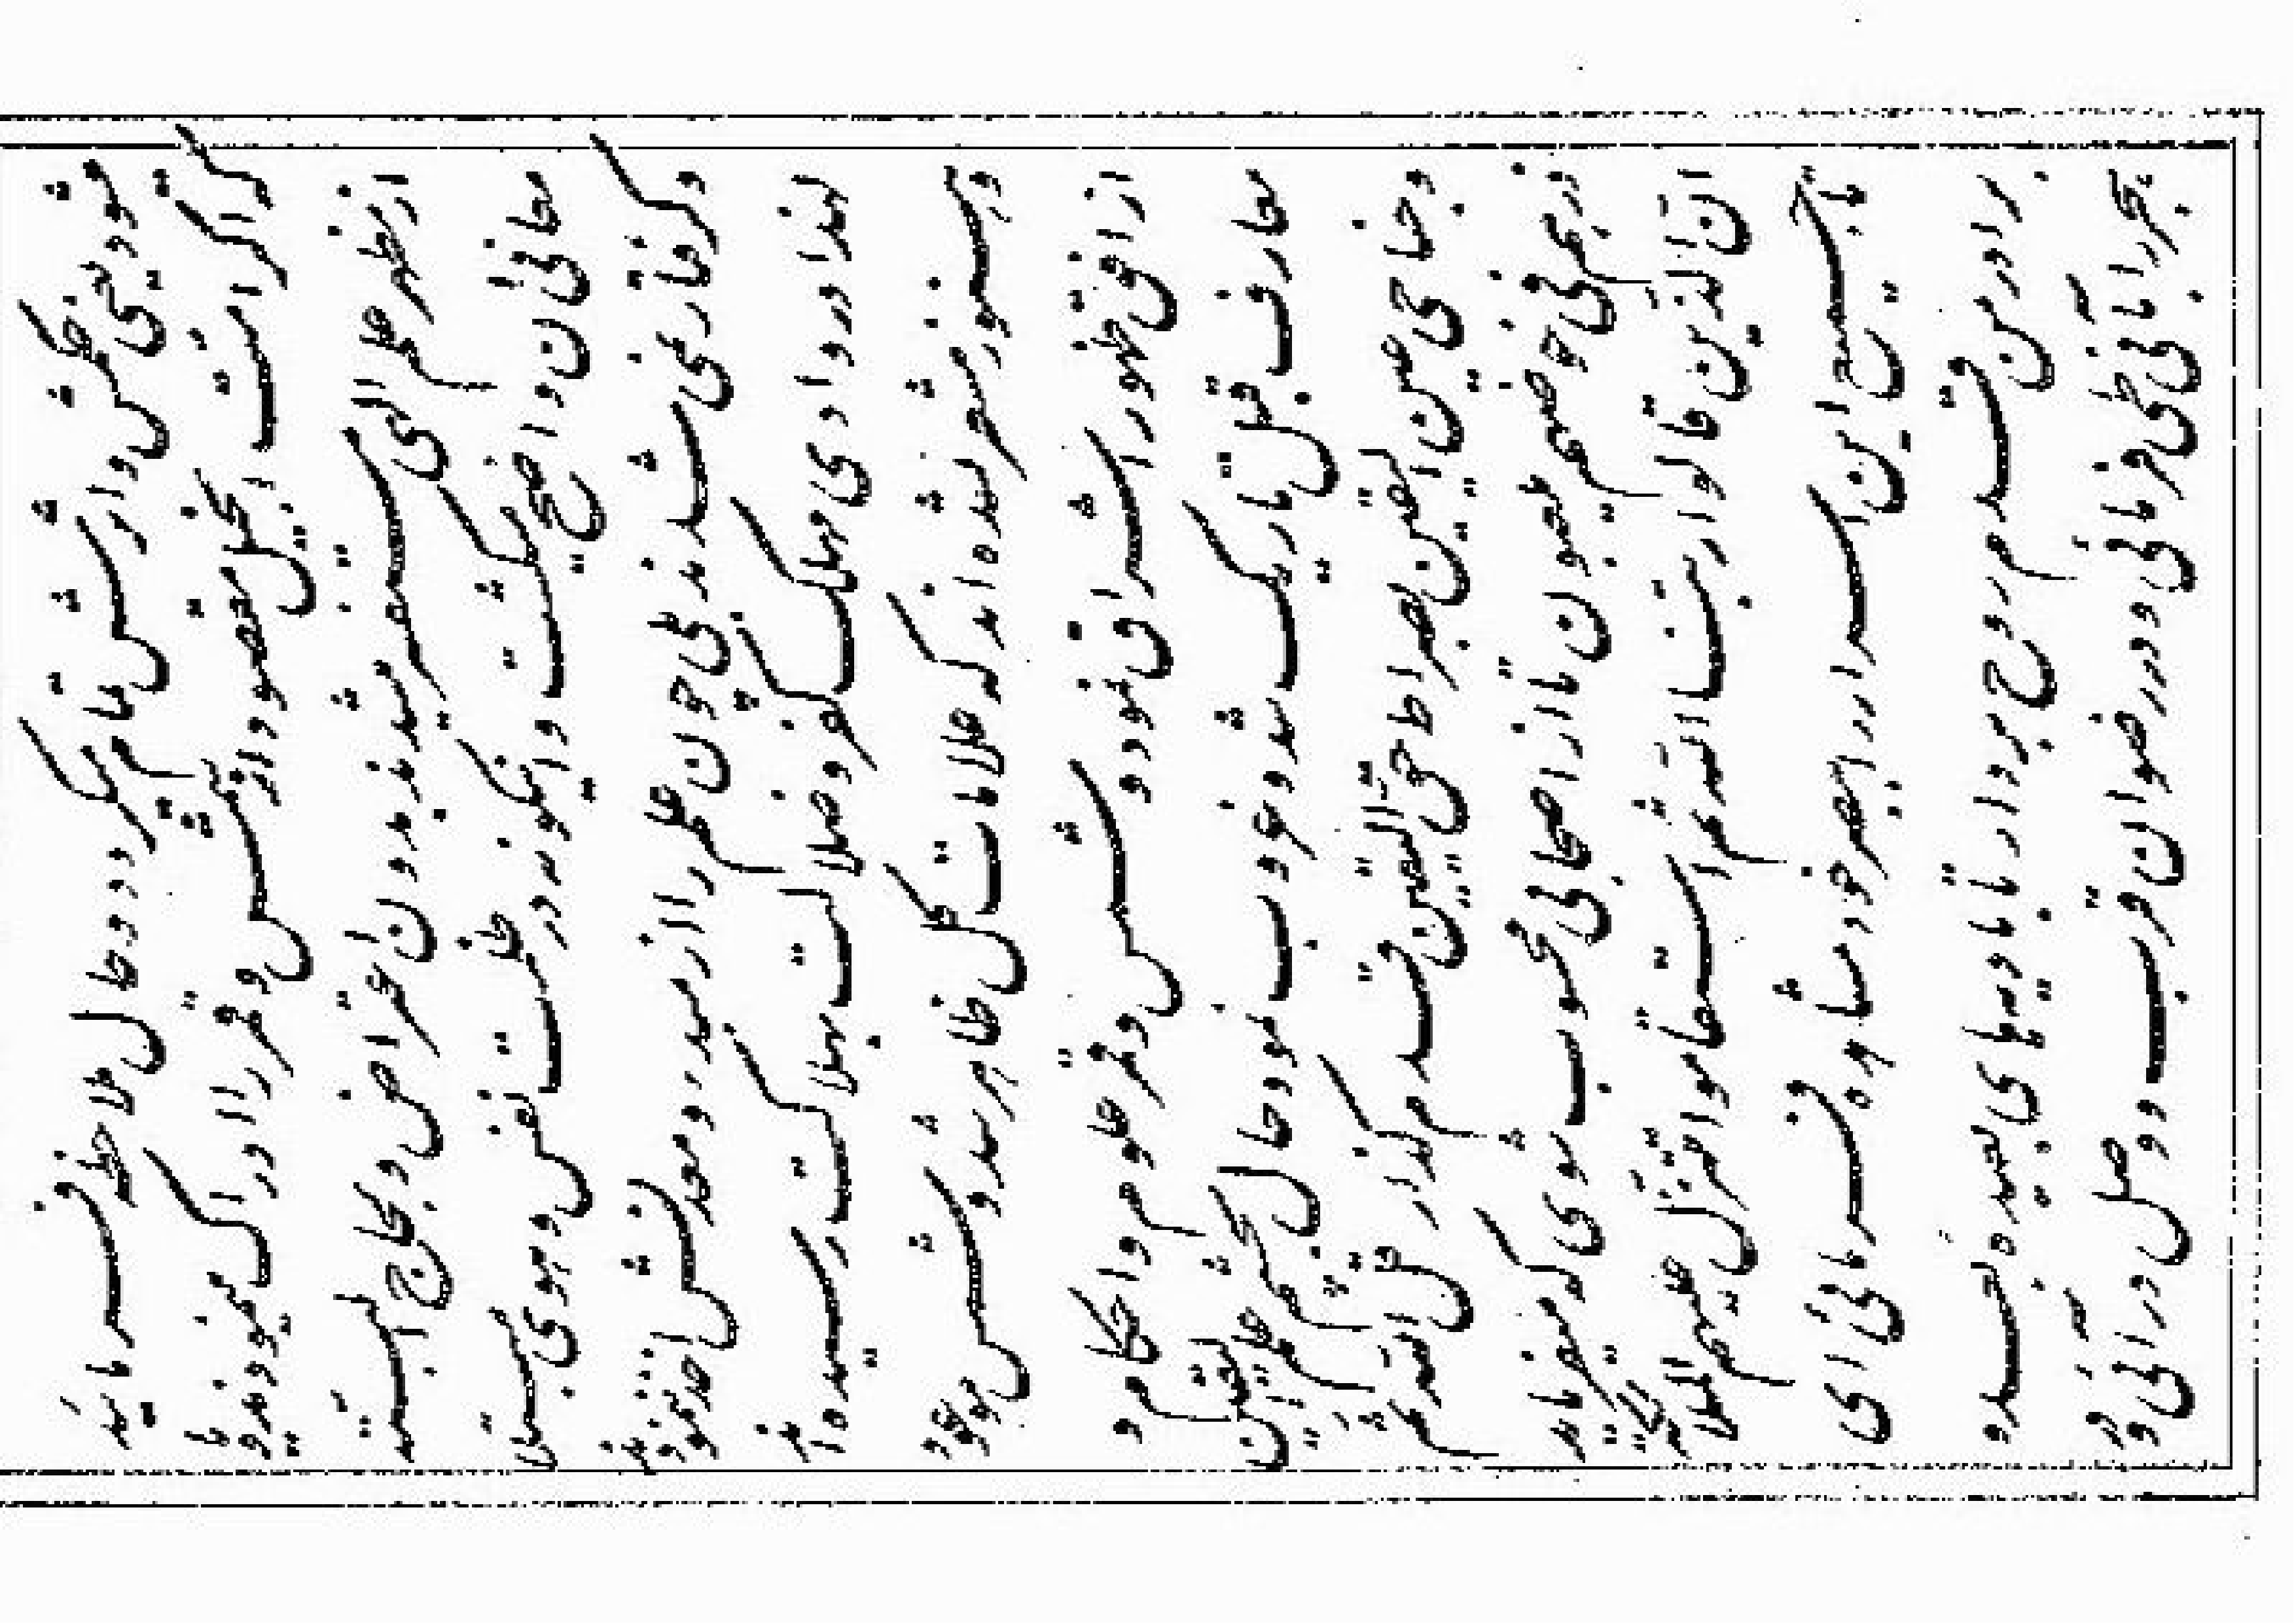 شود ... شمس و ... تمام میگردد و حال ملاحظه فرمایید
که اگر امت انجیل مقصود از شمس و قمر را ادراک مینمودند و یا
از مظهر علم الهی مستفسر میشدند بدون اعتراض و لجاج البته
معانی آن واضح میگشت و اینگونه در ظلمت نفس و هوی مبتلا
و گرفتار نمیشدند بلی چون علم را از مبدء و معدنش اخذ ننمودند
لهذا در وادی مهلک کفر و ضلالت بهلاکت رسیده‌اند
و هنوز مستشعر نشده‌اند که علامات کل ظاهر شد و شمس موعود
از افق ظهور اشراق نمود و شمس و قمر علوم و احکام و
معارف قبل تاریک شد و غروب نمود حال بچشم علم الیقین
و جناحی عین الیقین بصراط حق الیقین قدم گذار قل الله ثم
ذرهم فی خوضهم یلعبون تا از اصحابی محسوب شوی که میفرماید
ان الذین قالوا ربنا الله ثم استقاموا تتنزل علیهم الملائکة
تا جمیع این اسرار را ببصر خود مشاهده فرمائی ای
برادر من قدم روح بردار تا بادیه‌های بعیده بعد و
هجر را بآنی طی فرمائی و در رضوان قرب و وصل درآئی و در